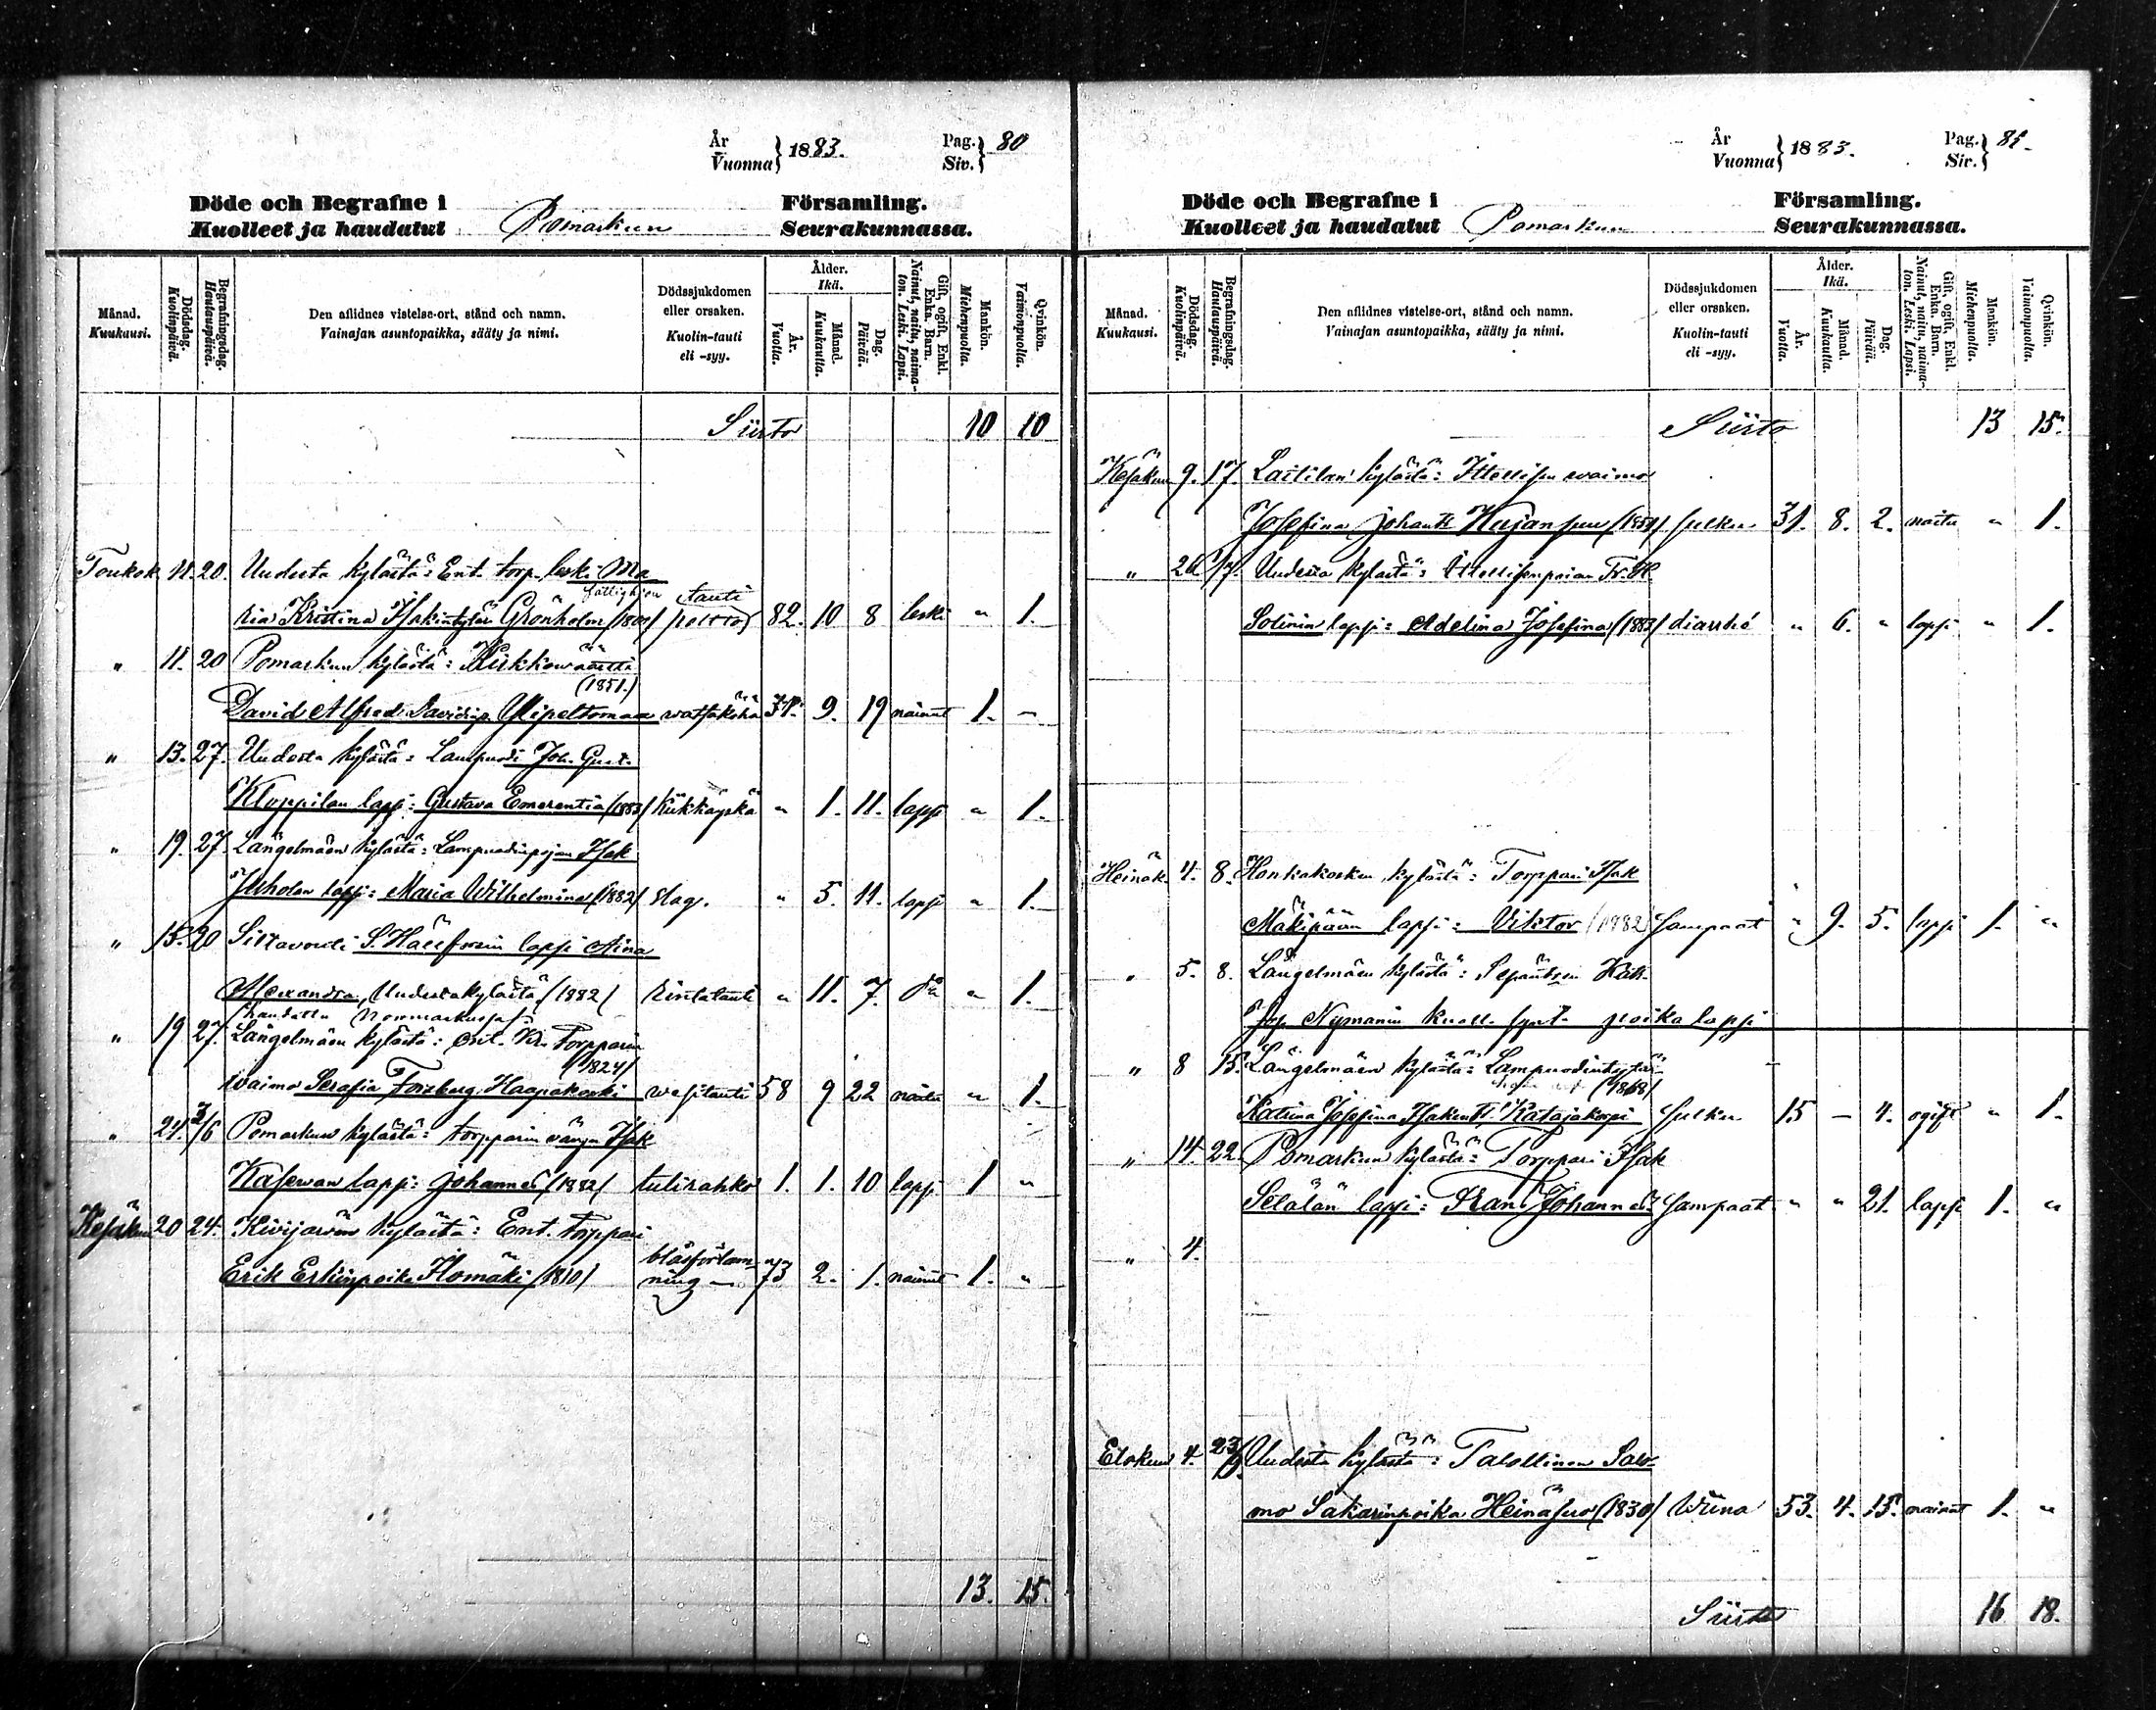 År
Vuonna } 1883.
Pag.
Siv. } 80
Döde och Begrafne i Församling.
Kuolleet ja haudatut Pomarkun Seurakunnassa.
Månad. Kuukausi.
Dödsdag. Kuolinpäivä.
Begrafningsdag. Hautauspäivä.
Den aflidnes vistelse-ort, stånd och namn.
Vainajan asuntopaikka, sääty ja nimi.
Dödssjukdomen eller orsaken.
Kuolin-tauti eli -syy.
Ålder. Ikä.
År. Vuotta.
Månad. Kuukautta.
Dag. Päivää.
Gift, ogift, Enkl. Enka. Barn.
Nainut, naitu, naimaton. Leski. Lapsi.
Mankön. Miehenpuolta.
Qvinkön. Vaimonpuolta.
Siirto 10 10
Toukok 11. 20. Uudesta kylästä: Ent. torp. leski Ma
fattighjon tauti
ria Kristina Isakintytär Grönholm /180 / 82. 10 8 leski " 1.
" 11. 20 Pomarkun kylästä: Kirkkoväärtti
(1851.)
David Alfred Davidinp. Ylipeltomaa watsakoha 31. 9. 19 nainut 1. –
" 13. 27. Uudesta kylästä: Lampuodi Joh. Gust.
Kloppilan lapsi: Gustava Emerentia /1883/ Kükkäyskä " 1. 11. lapsi " 1.
" 19. 27. Längelmäen kylästä: Lampuodinpojan Isak
Juholan lapsi: Maria Wilhelmina /1882/ slag. " 5. 11. lapsi " 1.
" 15. 20 Siltavouti S. Hällforsin lapsi Aina
Alexandra, Uudestakylästä /1882/ rintatauti " 11. 7. do " 1.
haudattu Norrmarkussa
" 19 27. Längelmäen kylästä: Torpparin
/1824/
waimo Serafia Forsberg Haapakoski wesitauti 58 9 22 naitu " 1.
" 21. 3/6 Pomarkun kylästä: torpparin vävyn Isak
Kasewan lapsi: Johannes /1882/ tulirohko 1. 1. 10 lapsi 1 "
Kesäkuu 20 24. Kivijärven kylästä: Ent. torppari
Erik Erkinpoika Ilomäki /1810/ blåsförlam-
ning – 73 2. 1. nainut 1. "
13. 15.
År
Vuonna } 1883.
Pag.
Siv. } 81.
Döde och Begrafne i Församling.
Kuolleet ja haudatut Pomarkun Seurakunnassa.
Månad. Kuukausi.
Dödsdag. Kuolinpäivä.
Begrafningsdag. Hautauspäivä.
Den aflidnes vistelse-ort, stånd och namn.
Vainajan asuntopaikka, sääty ja nimi.
Dödssjukdomen eller orsaken.
Kuolin-tauti eli -syy.
Ålder. Ikä.
År. Vuotta.
Månad. Kuukautta.
Dag. Päivää.
Gift, ogift, Enkl. Enka. Barn.
Nainut, naitu, naimaton. Leski. Lapsi.
Mankön. Miehenpuolta.
Qvinkön. Vaimonpuolta.
Siirto 13 15.
Kesäkuu 9. 17. Laitilan kylästä: Ittellisen waimo
Josefina Johant. Herjansuu /1851/ sulku 31. 8. 2. naitu " 1.
" 26 1/7. Uudesta kylästä: Ittellisenpojan Fr. W.
Solinin lapsi: Adelina Josefina /1882/ diarrhé " 6. " lapsi " 1.
Heinäk. 4. 8. Honkakosken kylästä: Torppari Isak
Mäkipään lapsi: Viktor /1882/ Sampaat " 9. 5. lapsi 1. "
" 5. 8. Längelmäen kylästä: Sepäntsen
Nymanin kuoll. synt. poika lapsi
" 8 15. Längelmäen kylästä: Lampuodintytär
(1868)
Katrina Josefina Isakintt. Katajakorpi sulku 15 – 4. ogift " 1.
" 14. 22. Pomarkun kylästä: Torppari Isak
Selälän lapsi: Frans Johannes Sampaat " " 21. lapsi 1. "
" 4.
Elokuu 4. 23/9 Uudesta kylästä: Talollinen Salo-
mo Sakarinpoika Heinäsuo /1830/ Wiina 53. 4. 15. nainut 1. "
Siirto 16 18.